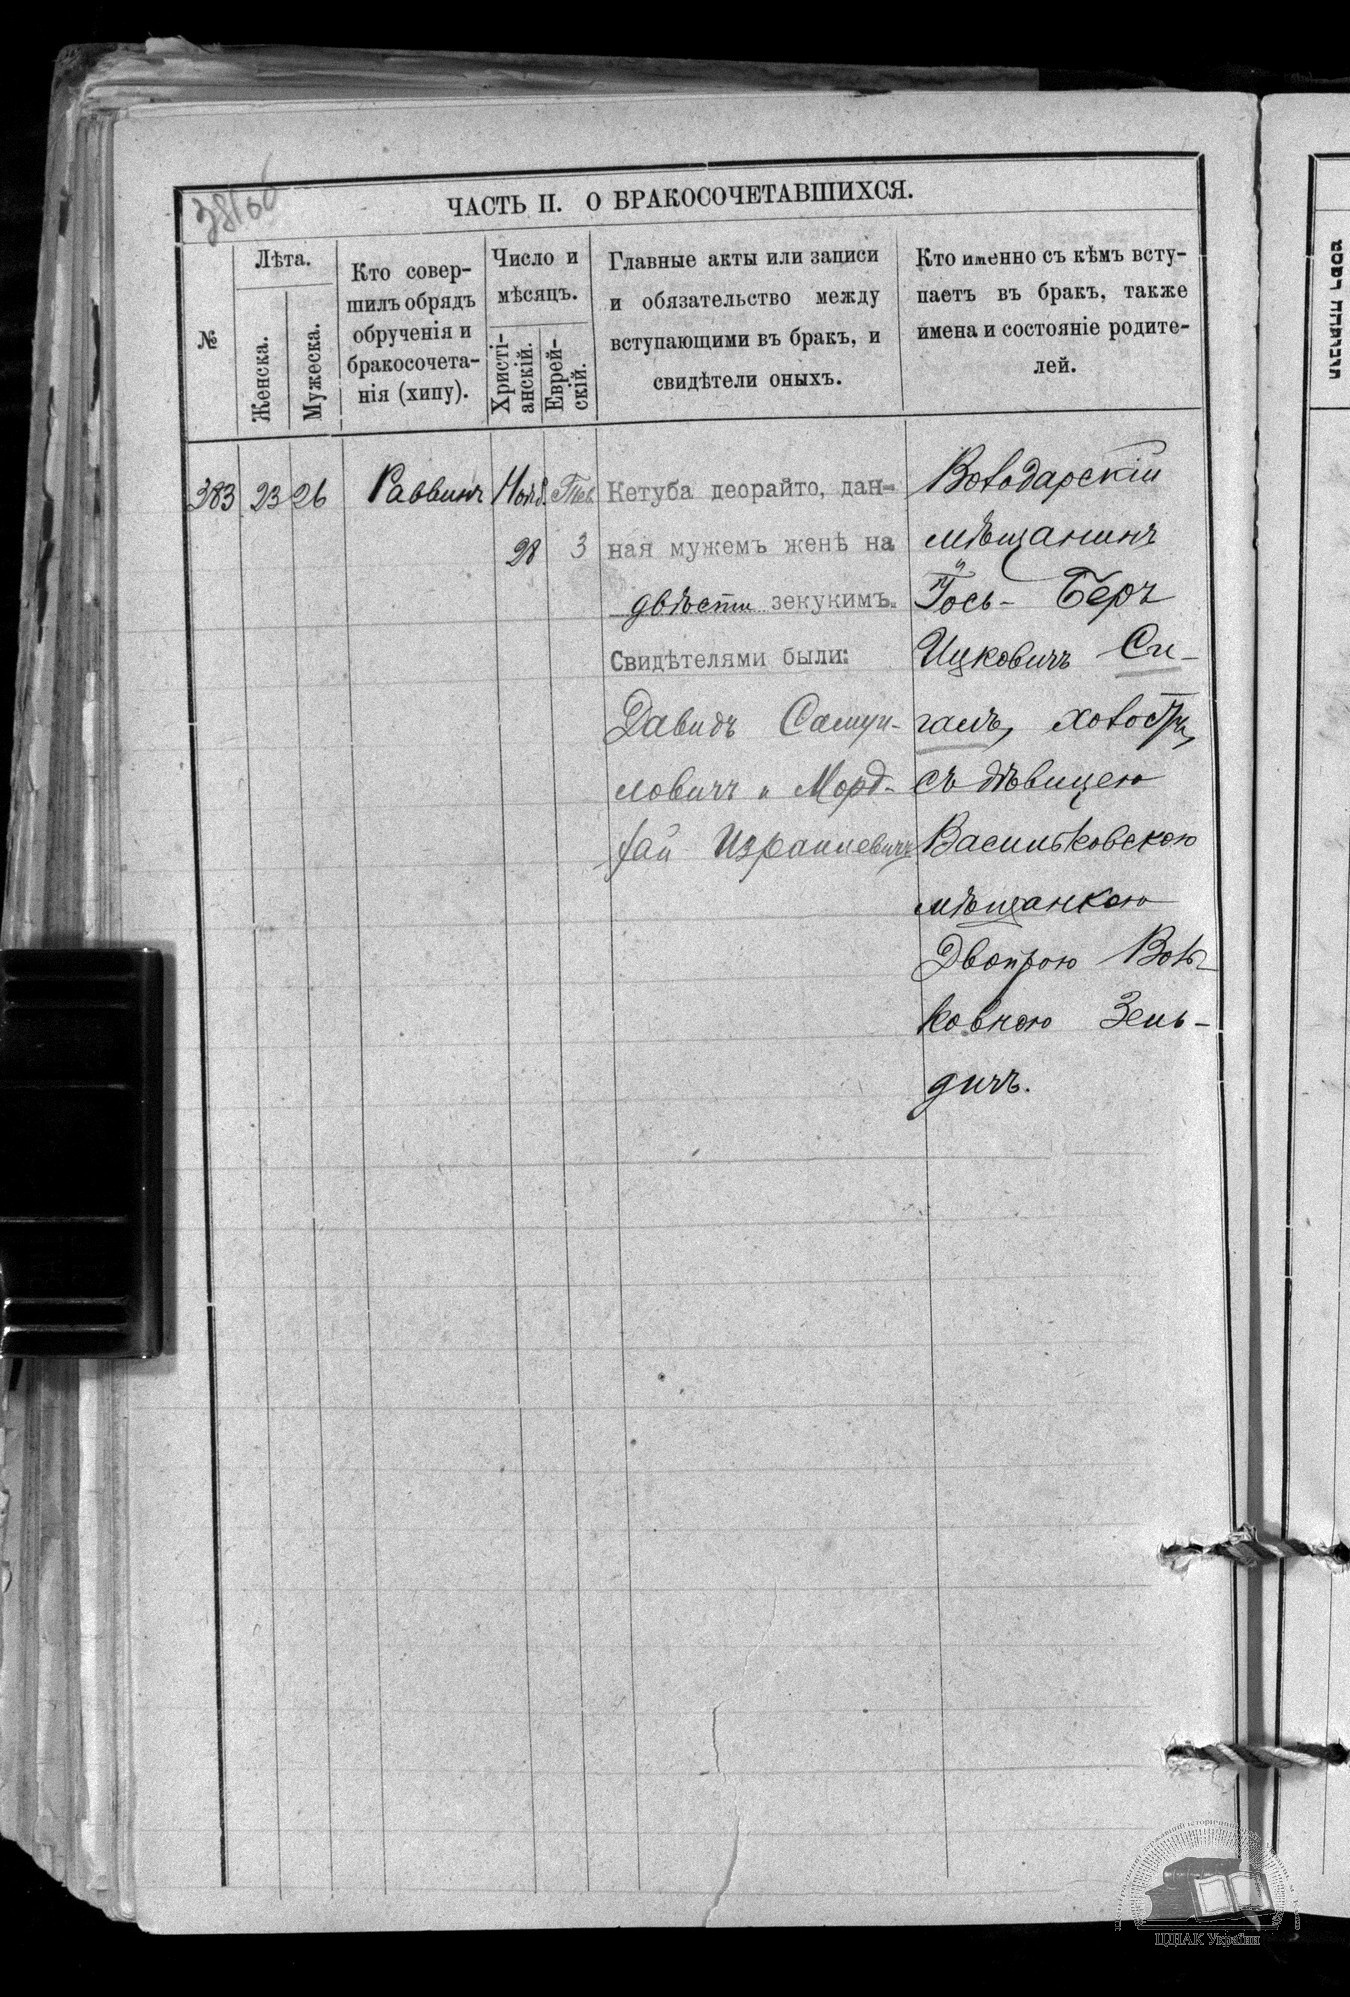 ЧАСТЬ II. О БРАКОСОЧЕТАВШИХСЯ.
№
Лѣта.
Женска.
Мужеска.
Кто совер-
шилъ обрядъ
обрученія и
бракосочета-
нія (хипу).
Число и
мѣсяцъ.
Христі-
анскій.
Еврей-
скій.
Главные акты или записи
и обязательство между
вступающими въ бракъ, и
свидѣтели оныхъ.
Кто именно съ кѣмъ всту-
паетъ въ бракъ, также
имена и состояніе родите-
лей.
383 23 26 Раввинъ Нояб. Тев.
28 3
Кетуба деорайто, дан-
ная мужемъ женѣ на
двѣсти зекукимъ.
Свидѣтелями были:
Давидъ Самуи-
ловичъ и Морд-
хай Израилевичъ
Володарскій
мѣщанинъ
Іось- Беръ
Ицковичъ Си-
галъ, холостый,
съ дѣвицею
Васильковскою
мѣщанкою
Двойрою Воль-
ковною Зель-
дичъ.
ЦДІАК України